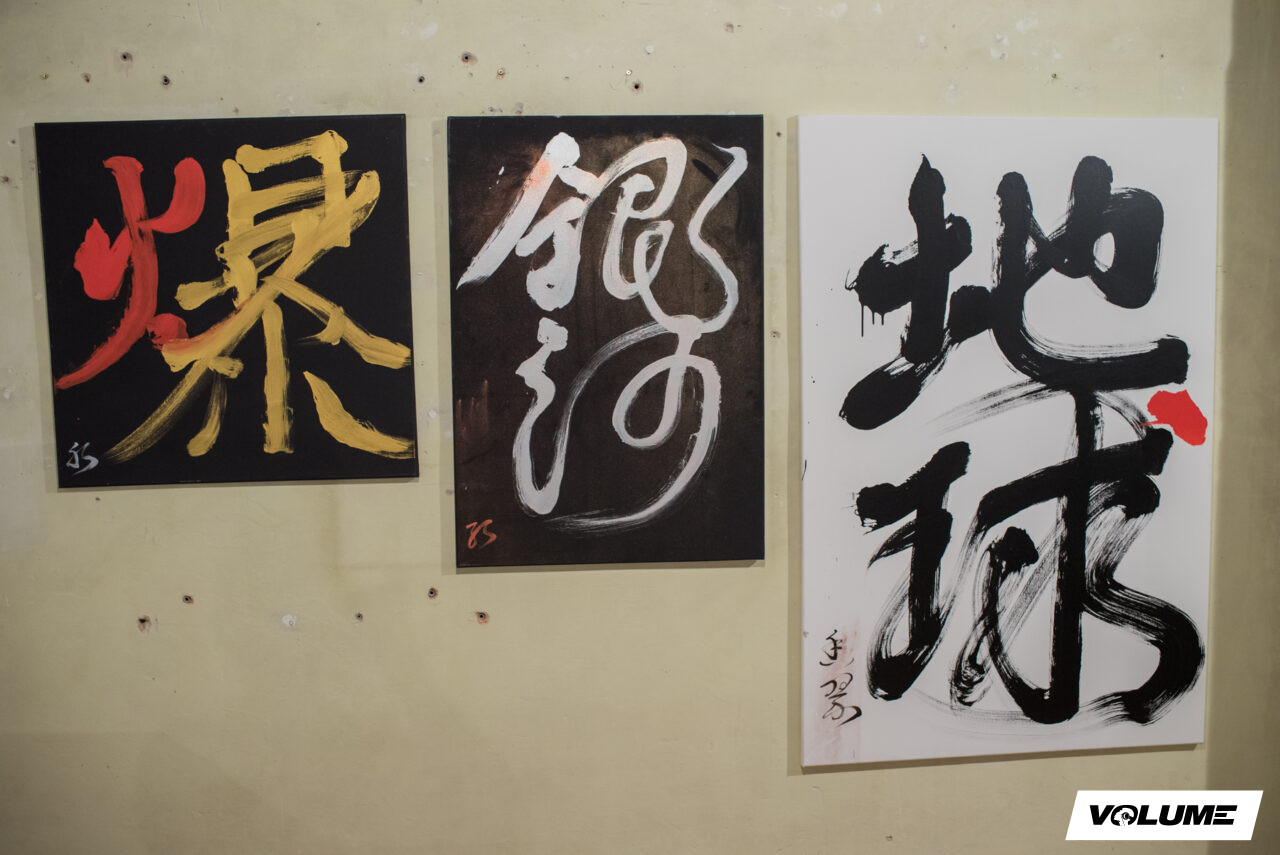 爆
銀
河
地
球
VOLUME